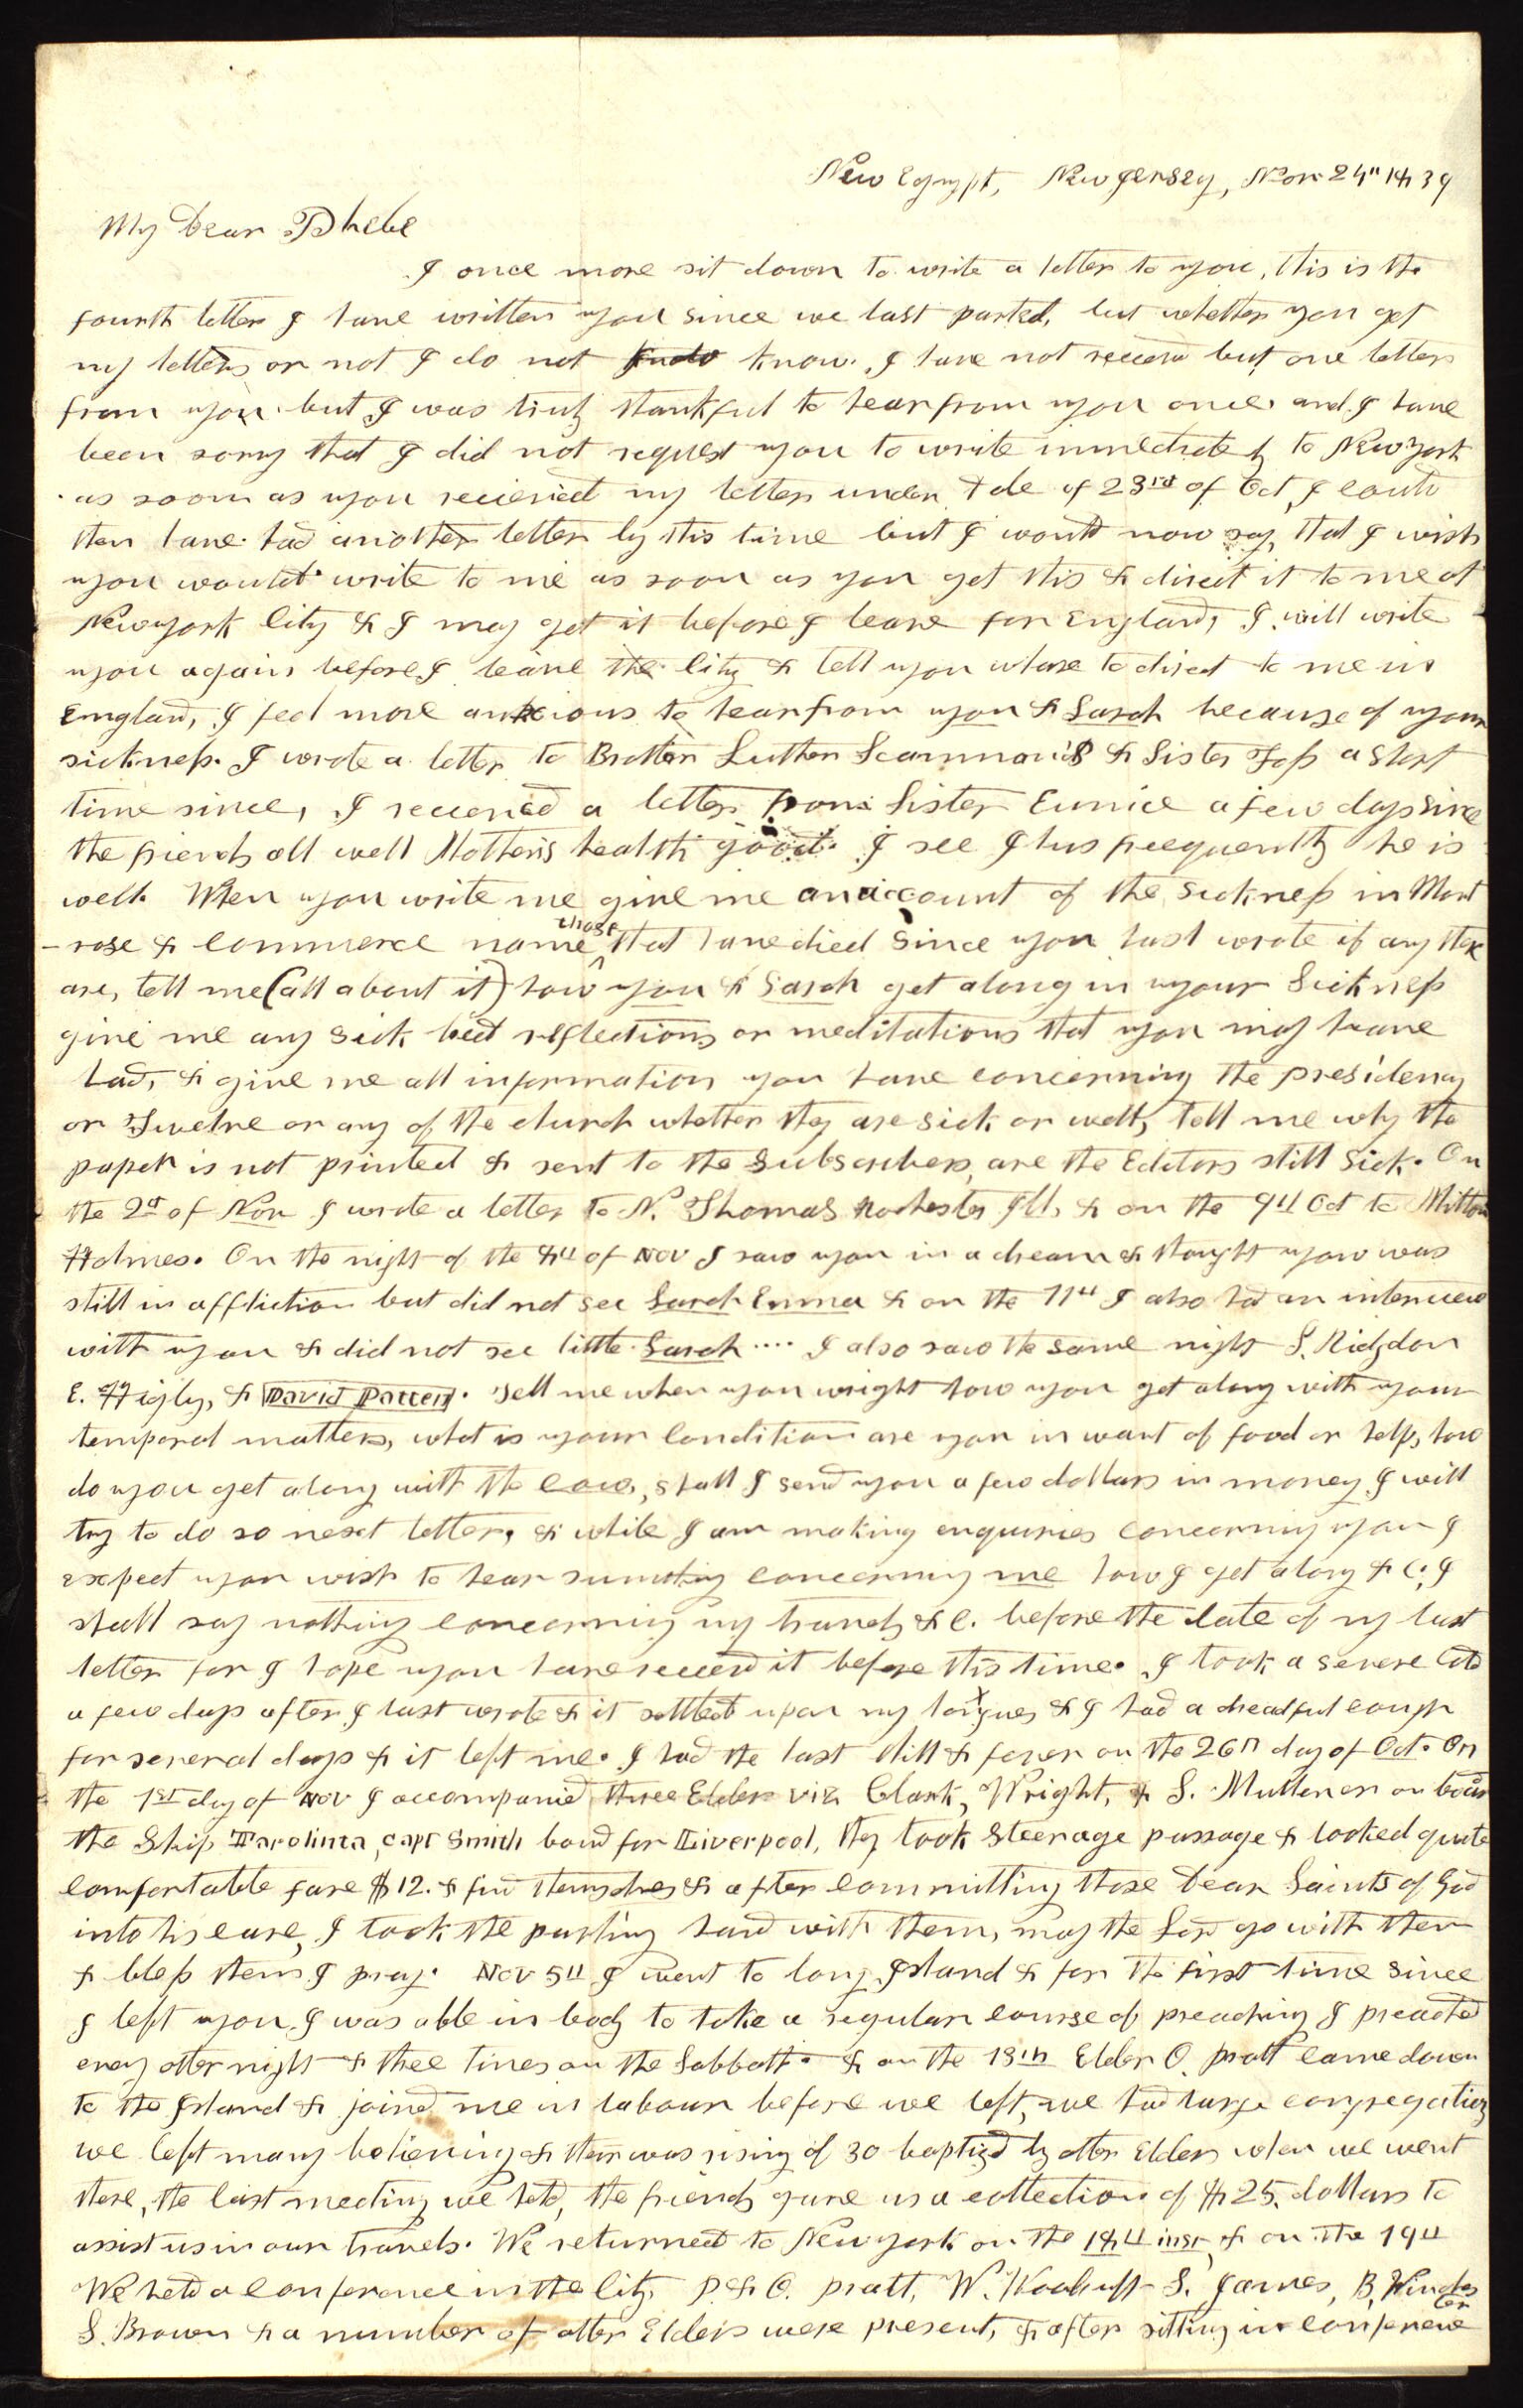 New Egypt, New Jersey, Nov 24th 1839
My Dear Phebe
I once more sit down to write a letter to you, this is the
fourth letter I have written you since we last parted, but whether you get
my letters or not I do not know. I have not receivd but one letter
from you but I was truly thankful to hear from you once and I have
been sorry that I did not request you to write immediately to New York
as soon as you recieved my letter under date of 23rd of Oct, I could
then have had another letter by this time but I would now say that I wish
you would write to me as soon as you get this & direct it to me at
New york City & I may get it before I leave for England, I will write
you again before I leave the City & tell you whare to direct to me in
England, I feel more anxious to hear from you & Sarah because of your
sickness. I wrote a letter to Brother Luther Scammans & Sister Foss a short
time since, I recieved a letter from Sister Eunice a few days since
the friends all well Mother's health good. I see Ilus freequently he is
well. When you write me give me an account of the sickness in Mont
-rose & Commerce name those that have died since you last wrote if any there
are, tell me (all about it) how you & Sarah get along in your Sickness
give me any sick bed reflections or meditations that you may have
had, & give me all information you have concerning the presidency
or Twelve or any of the church whether they are sick or well, tell me why the
paper is not printed & sent to the Subscribers, are the Editors still Sick. On
the 2d of Nov I wrote a letter to N. Thomas Rochester Ill, & on the 9th Oct to Milton
Holmes. On the night of the 8th of Nov I saw you in a dream & thought you was
still in affliction but did not see Sarah Emma & on the 11th I also had an interview
with you & did not see little Sarah .... I also saw the same night S. Rigdon
E. Higby, & David Patten. Tell me when you wright how you get along with your
temporal matters, what is your Condition are you in want of food or help, how
do you get along with the cow, shall I send you a few dollars in money I will
try to do so next letter, & while I am making enquiries concerning you I
expect you wish to hear sumthing concerning me how I get along &c. I
shall say nothing concerning my travels &c. before the date of my last
letter for I hope you have receivd it before this time. I took a severe Cold
a few days after I last wrote & it settled upon my lungues & I had a dreadful cough
for several days & it left me. I had the last chill & fever on the 26th day of Oct. On
the 1st day of Nov I accompanied three Elders viz Clark, Wright, & S. Mulliner on board
the Ship Tarolinta, Capt Smith bound for Liverpool, they took Steerage passage & looked quite
comfortable fare $12. & find themselves & after committing those Dear Saints of God
into his care, I took the parting hand with them, may the Lord go with them
& bless them I pray. Nov 5th I went to long Island & for the first time since
I left you I was able in body to take a regular course of preaching I preached
evry other night & three times on the Sabbath. & on the 13th Elder O. Pratt came down
to the Island & joined me in labour before we left, we had large congregations
we left many believing & their was rising of 30 baptized by other Elders when we went
there, the last meeting we held, the friends gave us a collection of $25. dollars to
assist us in our travels. We returned to New york on the 18th inst & on the 19th
We held a Conference in the City P. & O. Pratt, W. Woodruff S. James, B, Winches
ter
S. Brown & a number of other Elders were present, & after sitting in conference